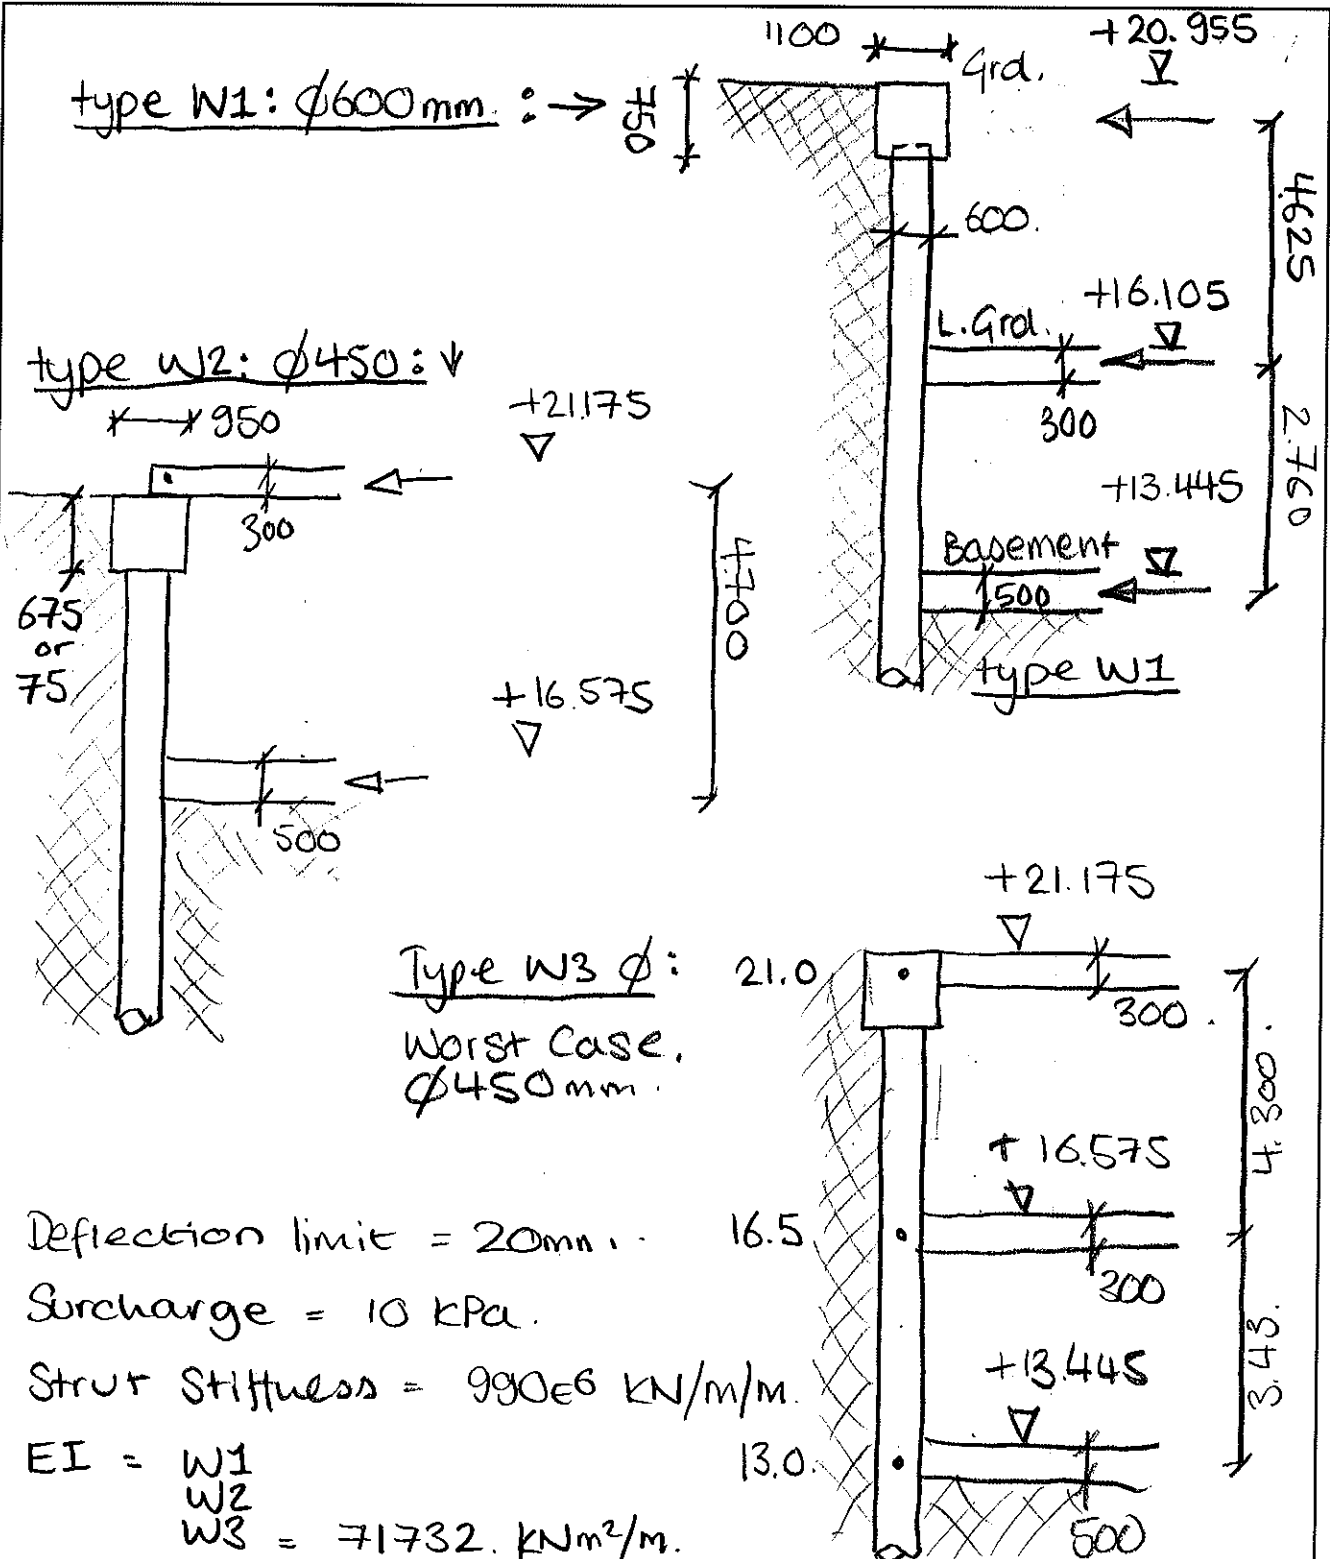 1100
+20.955
Grd.
type W1: ϕ600mm : →
750
4625
600.
+16.105
L.Grd.
300
2.760
+13.445
Basement
500
type W1
type W2: ϕ450: ↓
950
+21.175
300
675
or
75
4700
+16.575
500
Type W3 ϕ:
Worst Case.
ϕ450mm.
+21.175
21.0
300.
4.300.
+16.575
16.5
300
3.43.
+13.445
13.0.
500
Deflection limit = 20mm.
Surcharge = 10 kPa.
Strut Stiffness = 990e6 KN/m/m.
EI = W1
W2
W3 = 71732. KNm²/m.